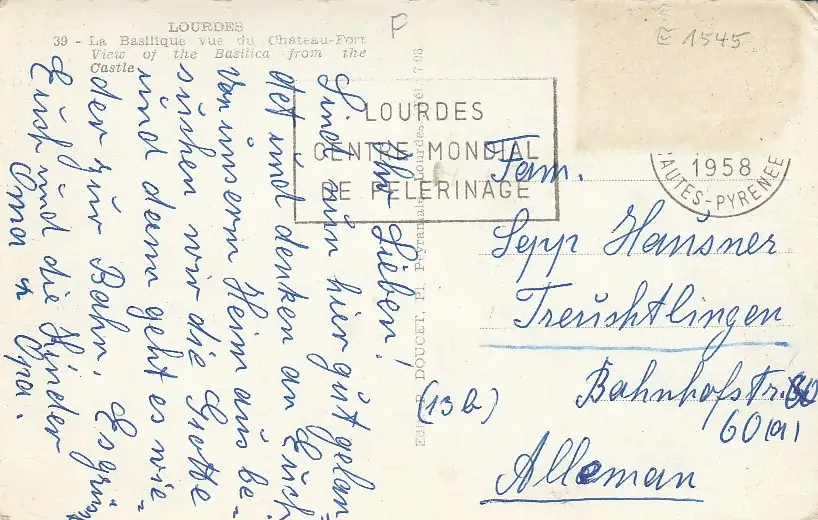 LOURDES
39 - La Basilique vue du Château-Fort
View of the Basilica from the
Castle
P
E 1545
LOURDES
CENTRE MONDIAL
DE PELERINAGE
1958
HAUTES-PYRENEE
Ihr Lieben!
Sind nun hier gut gelan-
det und denken an Euch
Von unserm Heim aus be-
suchen wir die Grotte
und dann geht es wie-
der zur Bahn. Es grüßt
Euch und die Kinder
Oma & Opa.
DOUCET, Pl. Peyramale, Lourdes
Fam.
Sepp Hausner
Treuchtlingen
Bahnhofstr.
60
(13b)
Alleman